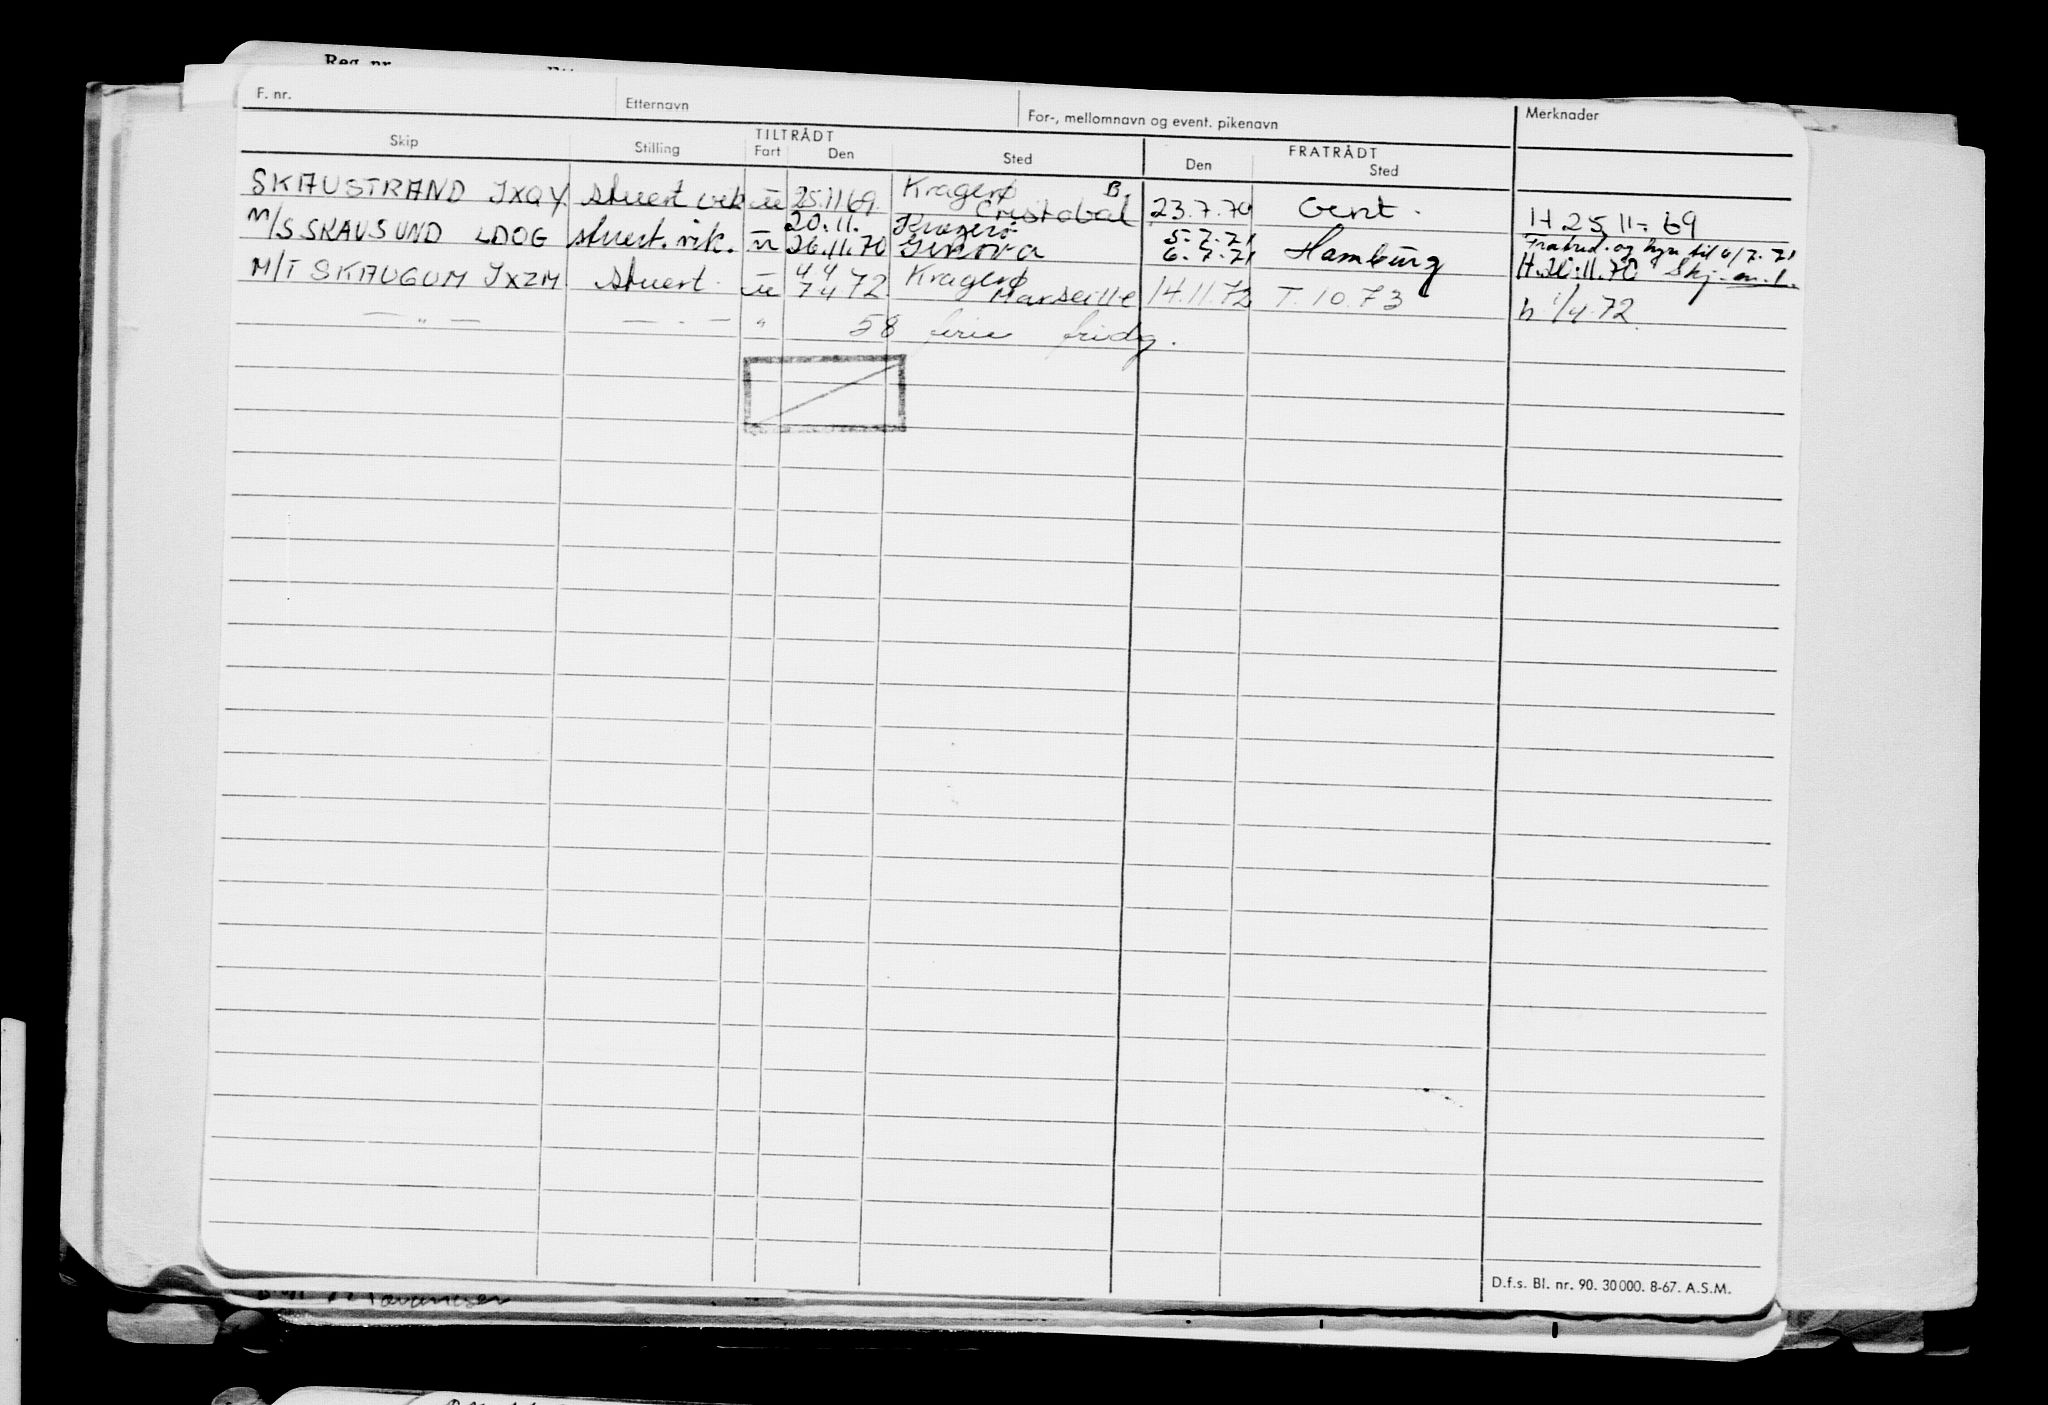 Reg. nr.
F. nr. Etternavn For-, mellomnavn og event. pikenavn Merknader
TILTRÅDT FRATRÅDT
Skip Stilling Fart Den Sted Den Sted
SKAUSTRAND JXQY stuert vik u 25.11 69. Kragerø B. Cristobal 23.7.70 Gent. H 25.11.-69
M/S SKAUSUND LDOG stuert. vik. u 20.11. 26.11.70 Kragerø Genova 5.7.71 6.7.71 Hamburg Fratråd. og hyre til 6/7.71 H.20.11.70
M/T SKAUGUM JXZM stuert. u 4 4 7 4 72 Kragerø Marseille 14.11.72 T. 10.73 h 1/4.72.
— " — — " — " 58 ferie fridg.
D.f.s. Bl. nr. 90. 30000. 8-67. A.S.M.